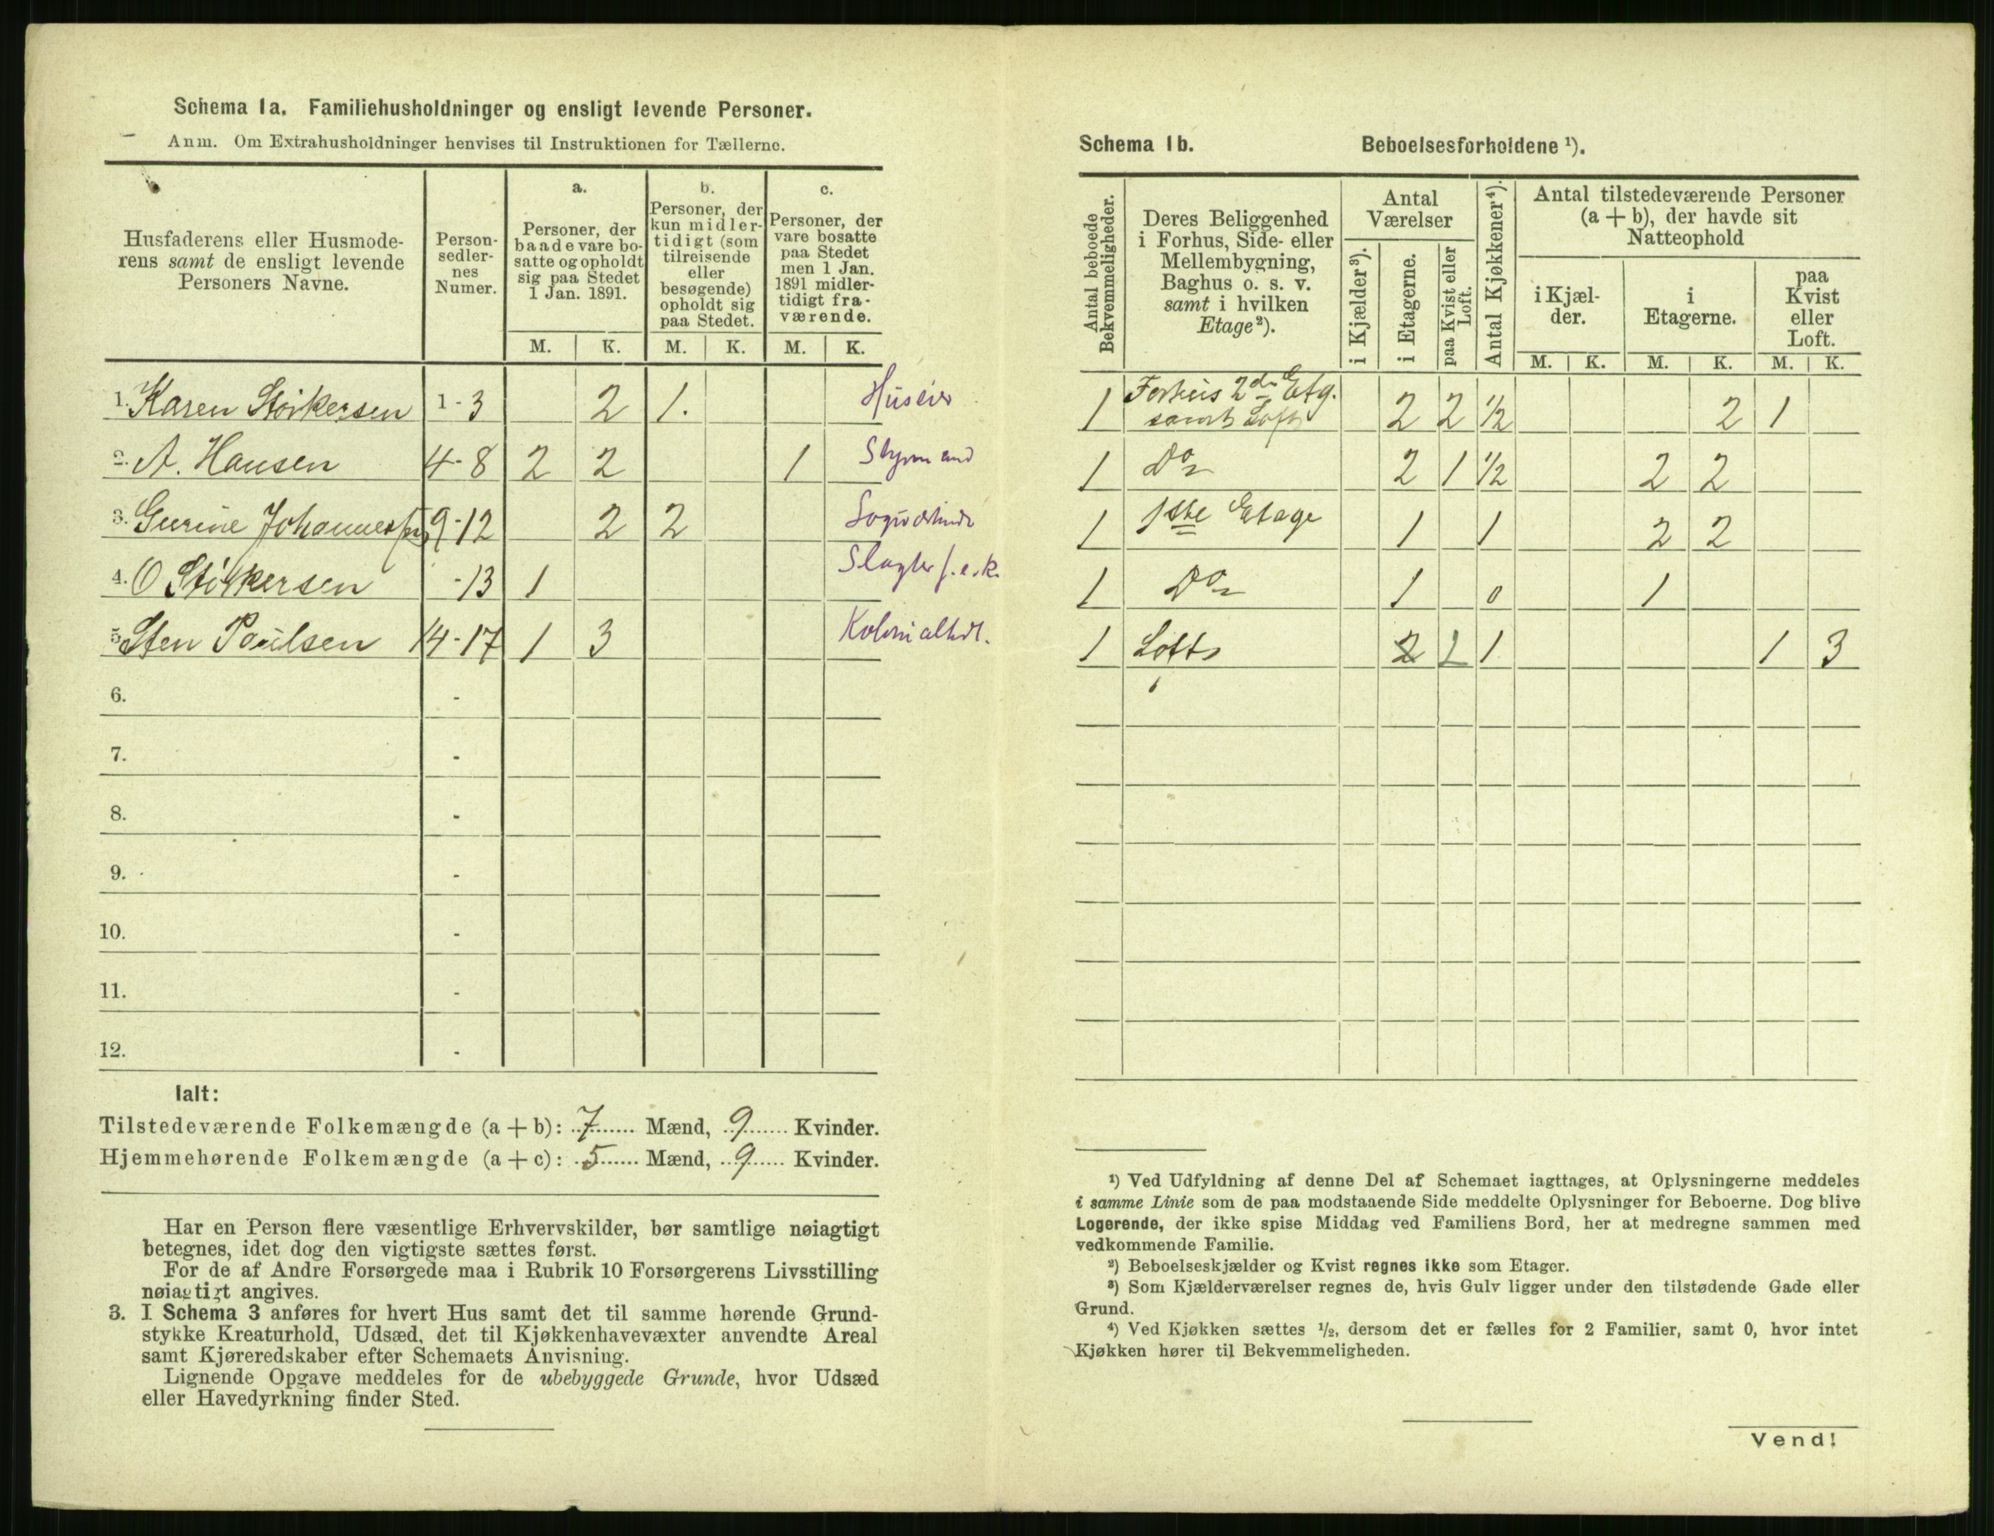 Schema 1a. Familiehusholdninger og ensligt levende Personer.
Anm. Om Extrahusholdninger henvises til Instruktionen for Tællerne.
Husfaderens eller Husmoderens samt de ensligt levende Personers Navne.
Personsedlernes Numer.
a.
Personer, der baade vare bosatte og opholdt sig paa Stedet 1 Jan. 1891.
b.
Personer, der kun midlertidigt (som tilreisende eller besøgende) opholdt sig paa Stedet.
c.
Personer, der vare bosatte paa Stedet men 1 Jan. 1891 midlertidigt fraværende.
M. K. M. K. M. K.
1. Karen Störkersen 1-3 2 1. Huseier
2. A. Hansen 4-8 2 2 1 Styrmand
3. Gurine 9-12 2 2
4. O Störkersen -13 1 Slagter f.e.k.
5. Sten Paulsen 14-17 1 3 Kolonialhdl.
6. -
7. -
8. -
9. -
10. -
11. -
12. -
Ialt:
Tilstedeværende Folkemængde (a + b): 7 Mænd, 9 Kvinder.
Hjemmehørende Folkemængde (a + c): 5 Mænd, 9 Kvinder.
Har en Person flere væsentlige Erhvervskilder, bør samtlige nøiagtigt
betegnes, idet dog den vigtigste sættes først.
For de af Andre Forsørgede maa i Rubrik 10 Forsørgerens Livsstilling
nøiagtigt angives.
3. I Schema 3 anføres for hvert Hus samt det til samme hørende Grund-
stykke Kreaturhold, Udsæd, det til Kjøkkenhavevæxter anvendte Areal
samt Kjøreredskaber efter Schemaets Anvisning.
Lignende Opgave meddeles for de ubebyggede Grunde, hvor Udsæd
eller Havedyrkning finder Sted.
Schema 1b. Beboelsesforholdene ¹).
Antal beboede Bekvemmeligheder.
Deres Beliggenhed i Forhus, Side- eller Mellembygning, Baghus o. s. v. samt i hvilken Etage ²).
Antal Værelser
i Kjælder ³).
i Etagerne.
paa Kvist eller Loft.
Antal Kjøkkener ⁴).
Antal tilstedeværende Personer (a + b), der havde sit Natteophold
i Kjælder.
i Etagerne.
paa Kvist eller Loft.
M. K. M. K. M. K.
1 Forhus 2den Etg. samt Loft 2 2 1/2 2 1
1 Do 2 1 1/2 2 2
1 1ste Etage 1 1 2 2
1 Do 1 0 1
1 Lofts 2 2 1 1 3
¹) Ved Udfyldning af denne Del af Schemaet iagttages, at Oplysningerne meddeles
i samme Linie som de paa modstaaende Side meddelte Oplysninger for Beboerne. Dog blive
Logerende, der ikke spise Middag ved Familiens Bord, her at medregne sammen med
vedkommende Familie.
²) Beboelseskjælder og Kvist regnes ikke som Etager.
³) Som Kjælderværelser regnes de, hvis Gulv ligger under den tilstødende Gade eller
Grund.
⁴) Ved Kjøkken sættes ½, dersom det er fælles for 2 Familier, samt 0, hvor intet
Kjøkken hører til Bekvemmeligheden.
Vend!